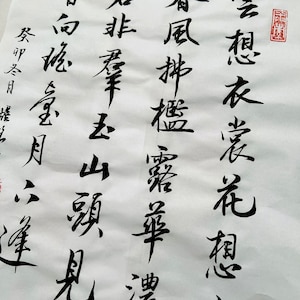 雲想衣裳花想
春風拂檻露華濃
若非羣玉山頭見
向瑤臺月下逢
癸卯冬月